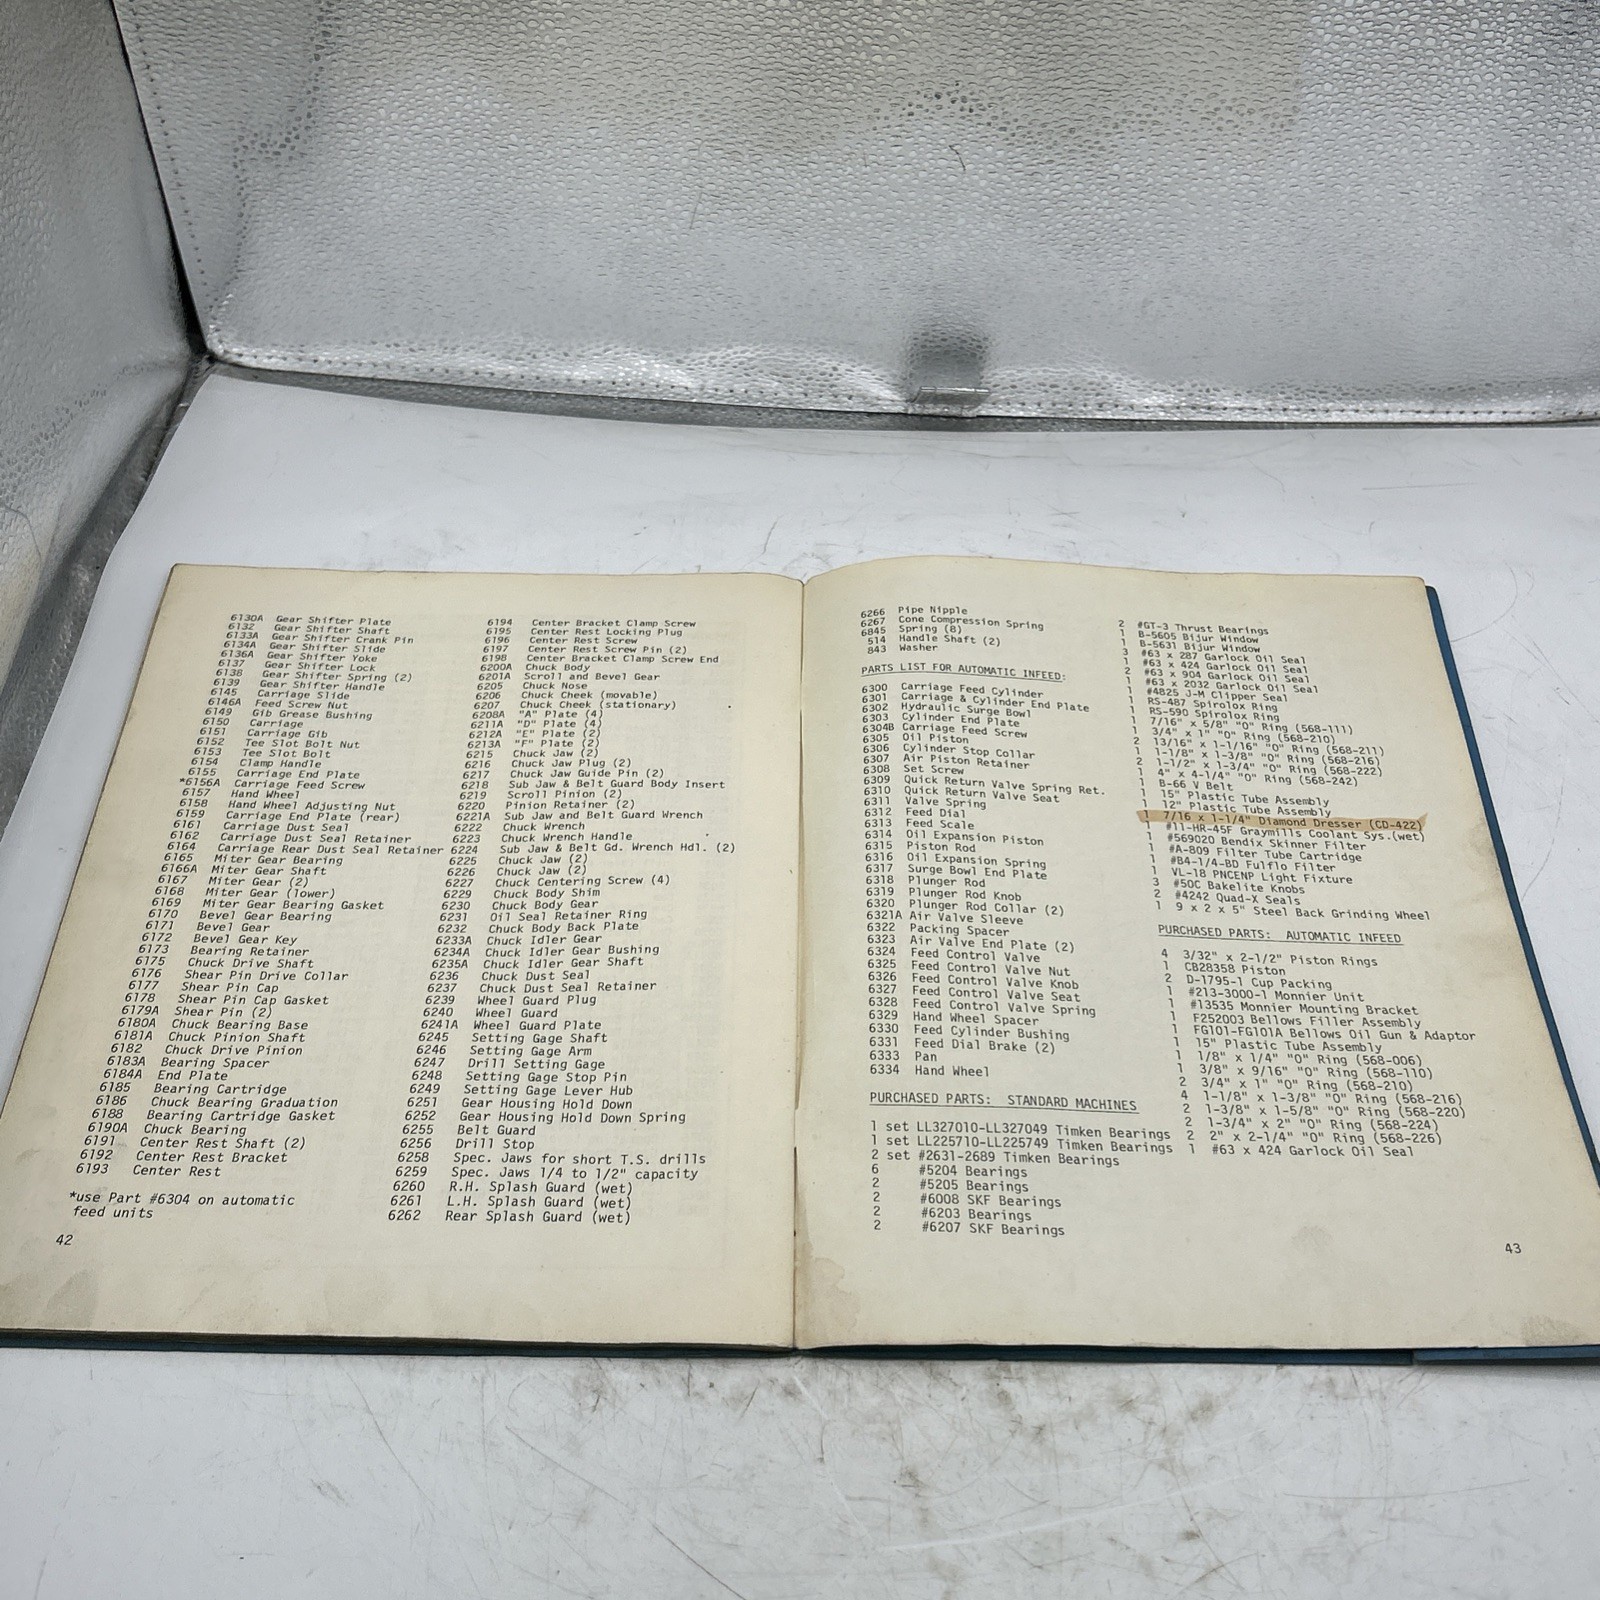 6130A Gear Shifter Plate
6132 Gear Shifter Shaft
6133A Gear Shifter Crank Pin
6134A Gear Shifter Slide
6136A Gear Shifter Yoke
6137 Gear Shifter Lock
6138 Gear Shifter Spring (2)
6139 Gear Shifter Handle
6145 Carriage Slide
6146A Feed Screw Nut
6149 Gib Grease Bushing
6150 Carriage
6151 Carriage Gib
6152 Tee Slot Bolt Nut
6153 Tee Slot Bolt
6154 Clamp Handle
6155 Carriage End Plate
*6156A Carriage Feed Screw
6157 Hand Wheel
6158 Hand Wheel Adjusting Nut
6159 Carriage End Plate (rear)
6161 Carriage Dust Seal
6162 Carriage Dust Seal Retainer
6164 Carriage Rear Dust Seal Retainer
6165 Miter Gear Bearing
6166A Miter Gear Shaft
6167 Miter Gear (2)
6168 Miter Gear (lower)
6169 Miter Gear Bearing Gasket
6170 Bevel Gear Bearing
6171 Bevel Gear
6172 Bevel Gear Key
6173 Bearing Retainer
6175 Chuck Drive Shaft
6176 Shear Pin Drive Collar
6177 Shear Pin Cap
6178 Shear Pin Cap Gasket
6179A Shear Pin (2)
6180A Chuck Bearing Base
6181A Chuck Pinion Shaft
6182 Chuck Drive Pinion
6183A Bearing Spacer
6184A End Plate
6185 Bearing Cartridge
6186 Chuck Bearing Graduation
6188 Bearing Cartridge Gasket
6190A Chuck Bearing
6191 Center Rest Shaft (2)
6192 Center Rest Bracket
6193 Center Rest
*use Part #6304 on automatic
feed units
42
6194 Center Bracket Clamp Screw
6195 Center Rest Locking Plug
6196 Center Rest Screw
6197 Center Rest Screw Pin (2)
6198 Center Bracket Clamp Screw End
6200A Chuck Body
6201A Scroll and Bevel Gear
6205 Chuck Nose
6206 Chuck Cheek (movable)
6207 Chuck Cheek (stationary)
6208A "A" Plate (4)
6211A "D" Plate (4)
6212A "E" Plate (2)
6213A "F" Plate (2)
6215 Chuck Jaw (2)
6216 Chuck Jaw Plug (2)
6217 Chuck Jaw Guide Pin (2)
6218 Sub Jaw & Belt Guard Body Insert
6219 Scroll Pinion (2)
6220 Pinion Retainer (2)
6221A Sub Jaw and Belt Guard Wrench
6222 Chuck Wrench
6223 Chuck Wrench Handle
6224 Sub Jaw & Belt Gd. Wrench Hdl. (2)
6225 Chuck Jaw (2)
6226 Chuck Jaw (2)
6227 Chuck Centering Screw (4)
6229 Chuck Body Shim
6230 Chuck Body Gear
6231 Oil Seal Retainer Ring
6232 Chuck Body Back Plate
6233A Chuck Idler Gear
6234A Chuck Idler Gear Bushing
6235A Chuck Idler Gear Shaft
6236 Chuck Dust Seal
6237 Chuck Dust Seal Retainer
6239 Wheel Guard Plug
6240 Wheel Guard
6241A Wheel Guard Plate
6245 Setting Gage Shaft
6246 Setting Gage Arm
6247 Drill Setting Gage
6248 Setting Gage Stop Pin
6249 Setting Gage Lever Hub
6251 Gear Housing Hold Down
6252 Gear Housing Hold Down Spring
6255 Belt Guard
6256 Drill Stop
6258 Spec. Jaws for short T.S. drills
6259 Spec. Jaws 1/4 to 1/2" capacity
6260 R.H. Splash Guard (wet)
6261 L.H. Splash Guard (wet)
6262 Rear Splash Guard (wet)
6266 Pipe Nipple
6267 Cone Compression Spring
6845 Spring (8)
514 Handle Shaft (2)
843 Washer
PARTS LIST FOR AUTOMATIC INFEED:
6300 Carriage Feed Cylinder
6301 Carriage & Cylinder End Plate
6302 Hydraulic Surge Bowl
6303 Cylinder End Plate
6304B Carriage Feed Screw
6305 Oil Piston
6306 Cylinder Stop Collar
6307 Air Piston Retainer
6308 Set Screw
6309 Quick Return Valve Spring Ret.
6310 Quick Return Valve Seat
6311 Valve Spring
6312 Feed Dial
6313 Feed Scale
6314 Oil Expansion Piston
6315 Piston Rod
6316 Oil Expansion Spring
6317 Surge Bowl End Plate
6318 Plunger Rod
6319 Plunger Rod Knob
6320 Plunger Rod Collar (2)
6321A Air Valve Sleeve
6322 Packing Spacer
6323 Air Valve End Plate (2)
6324 Feed Control Valve
6325 Feed Control Valve Nut
6326 Feed Control Valve Knob
6327 Feed Control Valve Seat
6328 Feed Control Valve Spring
6329 Hand Wheel Spacer
6330 Feed Cylinder Bushing
6331 Feed Dial Brake (2)
6333 Pan
6334 Hand Wheel
PURCHASED PARTS: STANDARD MACHINES
1 set LL327010-LL327049 Timken Bearings
1 set LL225710-LL225749 Timken Bearings
2 set #2631-2689 Timken Bearings
6 #5204 Bearings
2 #5205 Bearings
2 #6008 SKF Bearings
2 #6203 Bearings
2 #6207 SKF Bearings
2 #GT-3 Thrust Bearings
1 B-5605 Bijur Window
1 B-5631 Bijur Window
3 #63 x 287 Garlock Oil Seal
1 #63 x 424 Garlock Oil Seal
2 #63 x 904 Garlock Oil Seal
1 #63 x 2032 Garlock Oil Seal
1 #4825 J-M Clipper Seal
1 RS-487 Spirolox Ring
1 RS-590 Spirolox Ring
1 7/16" x 5/8" "O" Ring (568-111)
1 3/4" x 1" "O" Ring (568-210)
2 13/16" x 1-1/16" "O" Ring (568-211)
1 1-1/8" x 1-3/8" "O" Ring (568-216)
2 1-1/2" x 1-3/4" "O" Ring (568-222)
1 4" x 4-1/4" "O" Ring (568-242)
1 B-66 V Belt
1 15" Plastic Tube Assembly
1 12" Plastic Tube Assembly
1 7/16 x 1-1/4" Diamond Dresser (CD-422)
1 #11-HR-45F Graymills Coolant Sys.(wet)
1 #569020 Bendix Skinner Filter
1 #A-809 Filter Tube Cartridge
1 #B4-1/4-BD Fulflo Filter
1 VL-18 PNCENP Light Fixture
3 #50C Bakelite Knobs
2 #4242 Quad-X Seals
1 9 x 2 x 5" Steel Back Grinding Wheel
PURCHASED PARTS: AUTOMATIC INFEED
4 3/32" x 2-1/2" Piston Rings
1 CB28358 Piston
2 D-1795-1 Cup Packing
1 #213-3000-1 Monnier Unit
1 #13535 Monnier Mounting Bracket
1 F252003 Bellows Filler Assembly
1 FG101-FG101A Bellows Oil Gun & Adaptor
1 15" Plastic Tube Assembly
1 1/8" x 1/4" "O" Ring (568-006)
1 3/8" x 9/16" "O" Ring (568-110)
2 3/4" x 1" "O" Ring (568-210)
4 1-1/8" x 1-3/8" "O" Ring (568-216)
2 1-3/8" x 1-5/8" "O" Ring (568-220)
2 1-3/4" x 2" "O" Ring (568-224)
2 2" x 2-1/4" "O" Ring (568-226)
1 #63 x 424 Garlock Oil Seal
43